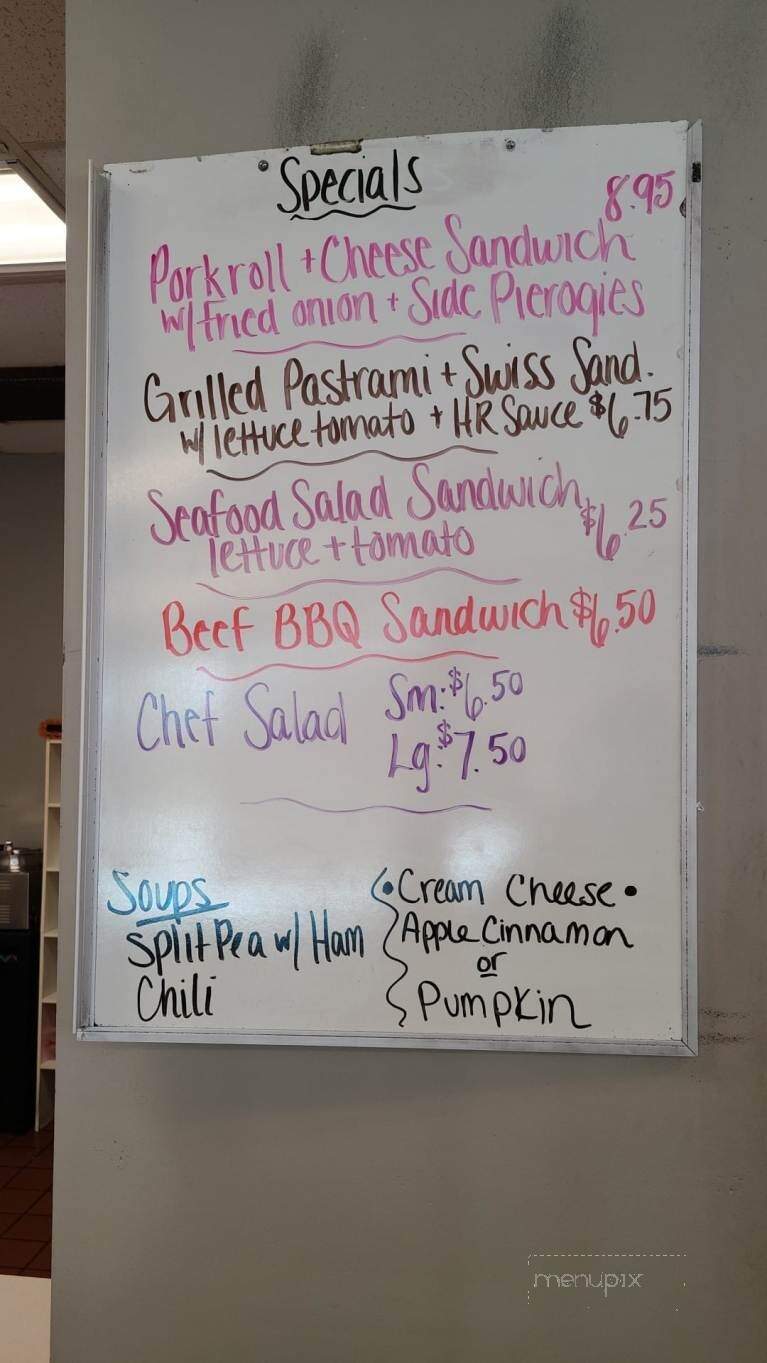 Specials
8.95
Porkroll + Cheese Sandwich
w/ fried onion + Side Pierogies
Grilled Pastrami + Swiss Sand.
w/ lettuce tomato + HR Sauce $6.75
Seafood Salad Sandwich
lettuce + tomato $6.25
Beef BBQ Sandwich $6.50
Chef Salad Sm: $6.50
Lg: $7.50
Soups
Split Pea w/ Ham
Chili
• Cream Cheese •
Apple Cinnamon
or
Pumpkin
menupix